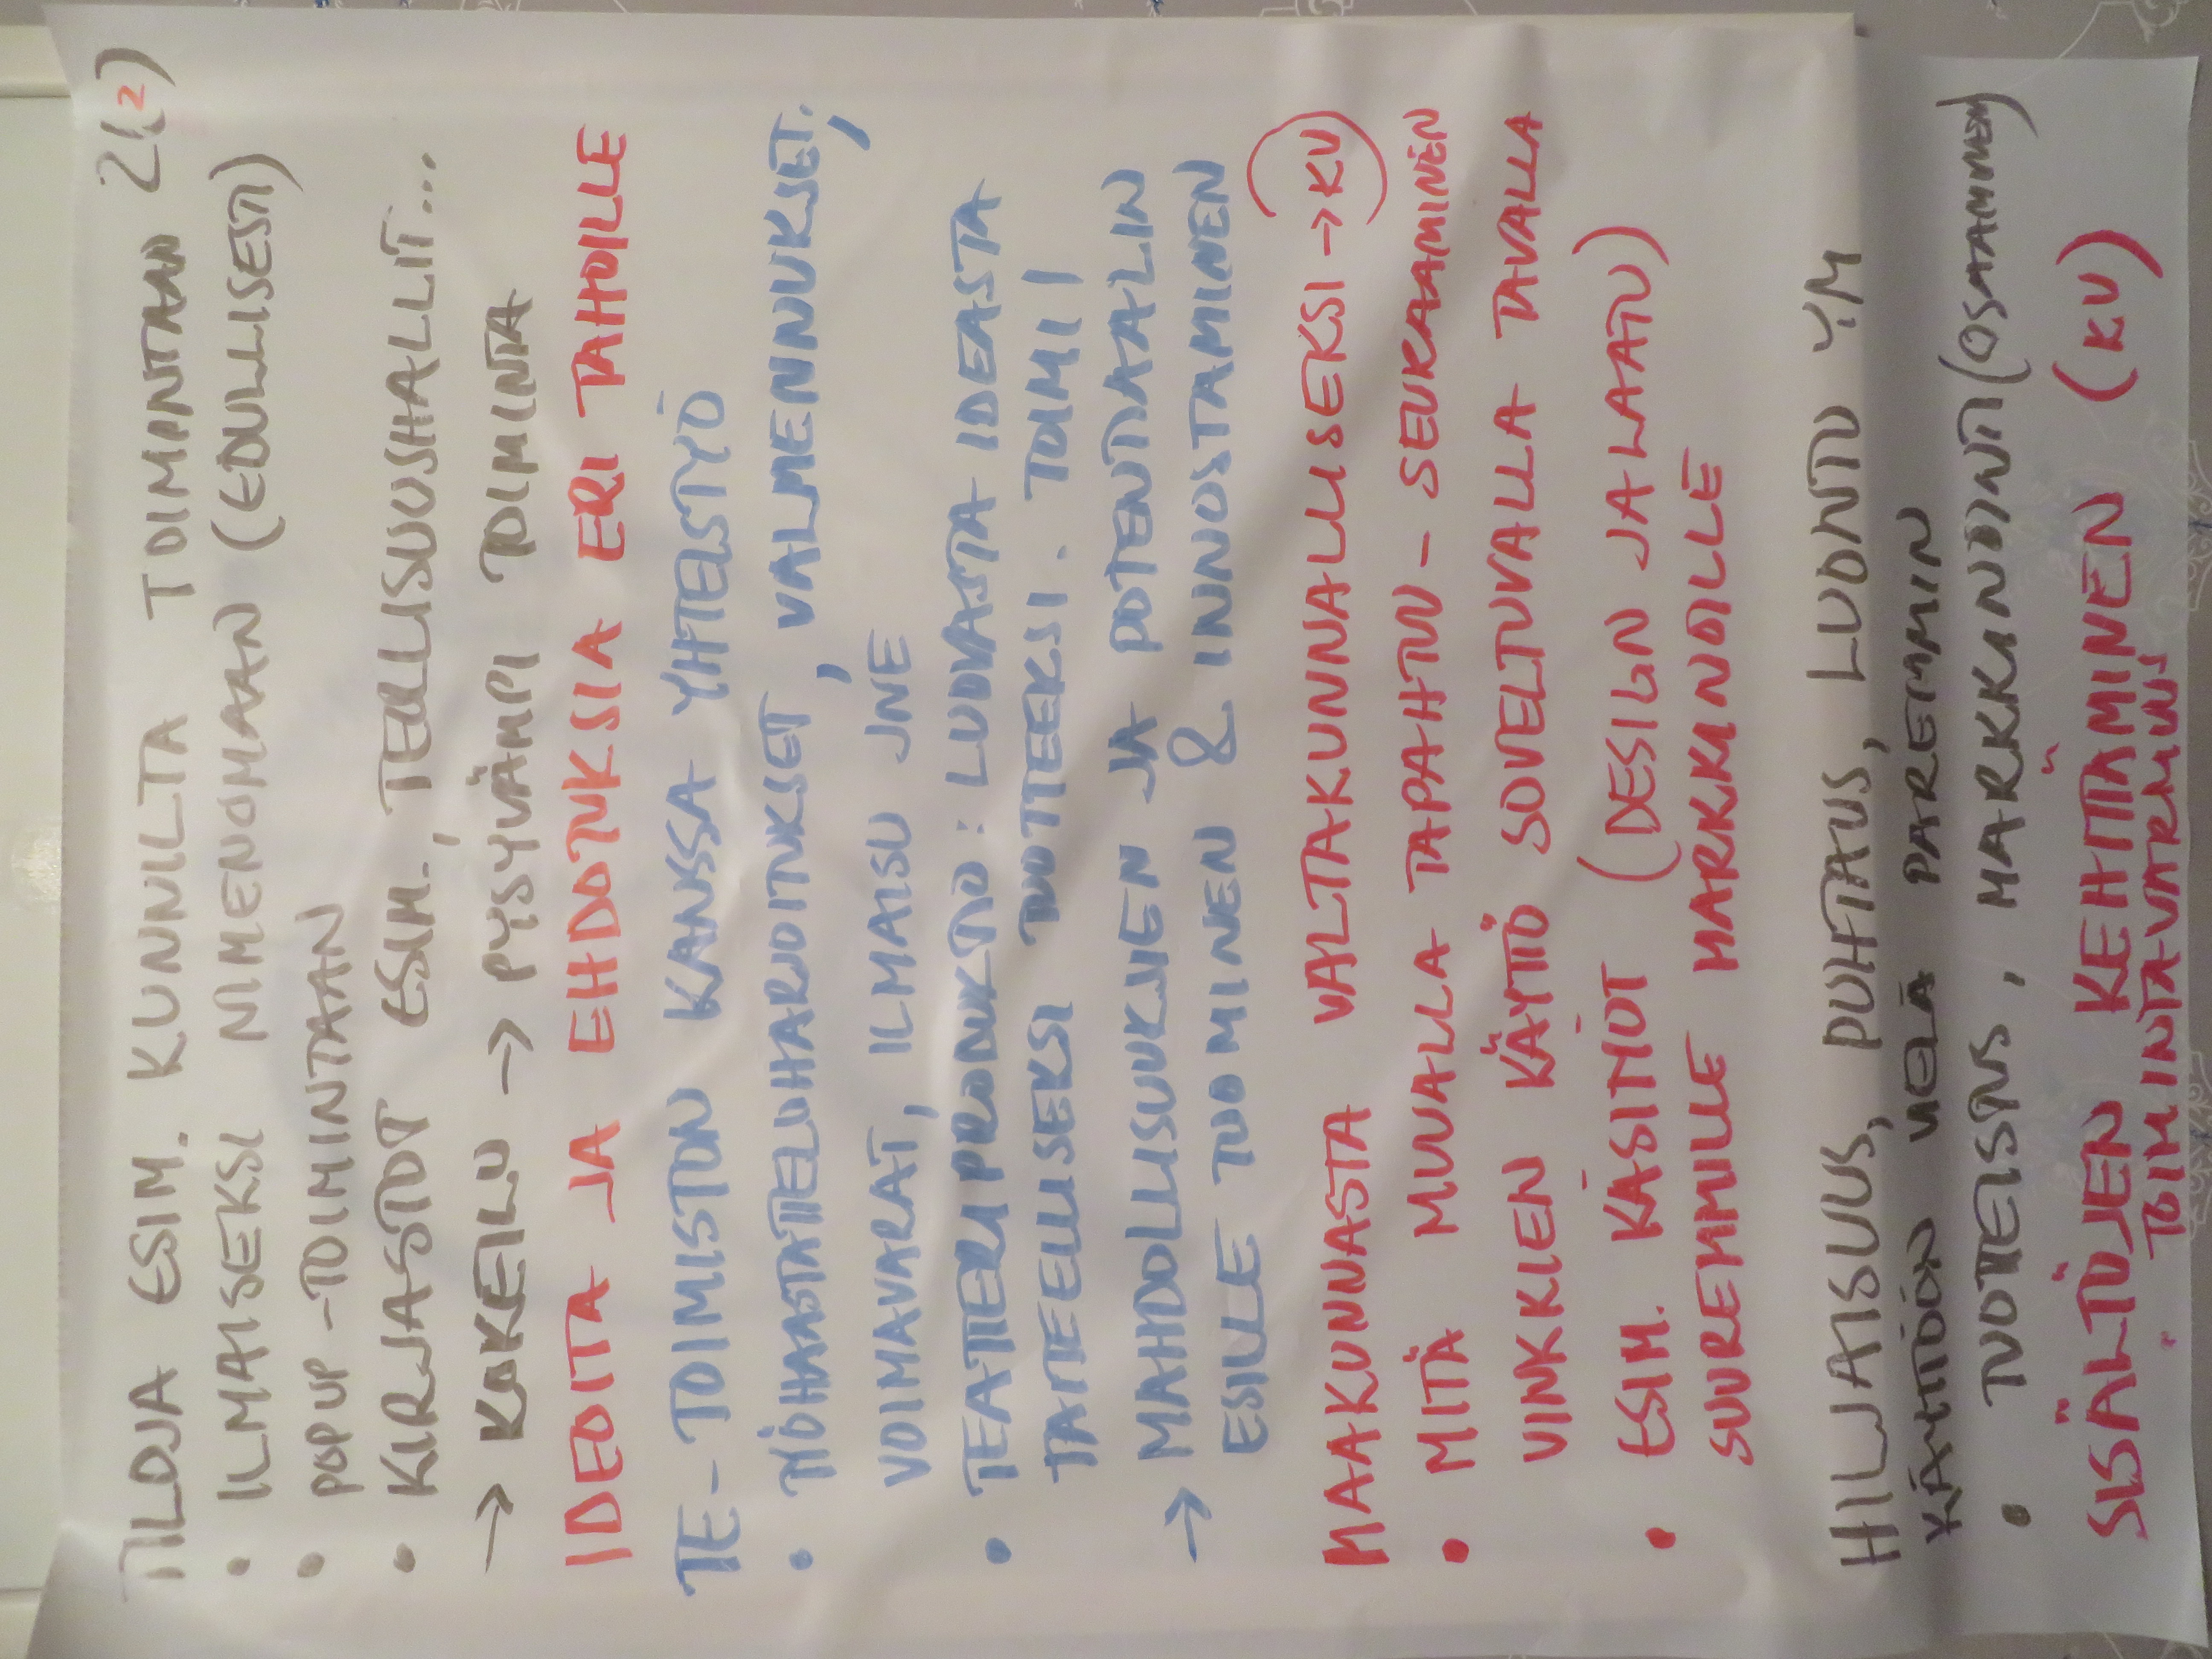 TILOJA ESIM. KUNNILTA TOIMINTAAN 2(2)
• ILMAISEKSI NIMENOMAAN (EDULLISESTI)
• POPUP-TOIMINTAAN
• KIRJASTOT ESIM., TEOLLISUUSHALLIT...
→ KOKEILU → PYSYVÄMPI TOIMINTA
IDEOITA JA EHDOTUKSIA ERI TAHOILLE
TE-TOIMISTON KANSSA YHTEISTYÖ
• TYÖHAASTATTELUHARJOITUKSET, VALMENNUKSET,
VOIMAVARAT, ILMAISU JNE
• TEATTERIPRODUKTIO: LUOVASTA IDEASTA
TAITEELLISEKSI TUOTTEEKSI. TOIMII
→ MAHDOLLISUUKSIEN JA POTENTIAALIN
ESILLE TUOMINEN & INNOSTAMINEN
MAAKUNNASTA VALTAKUNNALLISEKSI → KV
• MITÄ MUUALLA TAPAHTUU - SEURAAMINEN
VINKKIEN KÄYTTÖ SOVELTUVALLA TAVALLA
• ESIM. KÄSITYÖT (DESIGN JA LAATU)
SUUREMMILLE MARKKINOILLE
HILJAISUUS, PUHTAUS, LUONTO YM
KÄYTTÖÖN VIELÄ PAREMMIN
• TUOTTEISTUS, MARKKINOINTI (OSAAMINEN)
SISÄLTÖJEN KEHITTÄMINEN (KV)
TOIMINTAVARMUUS